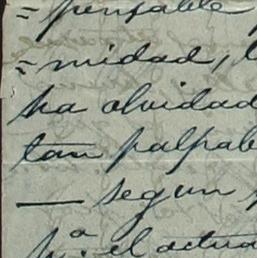 =pensable
=midad, l
ha olvidad
tan palpab
— segun
pa. el actua